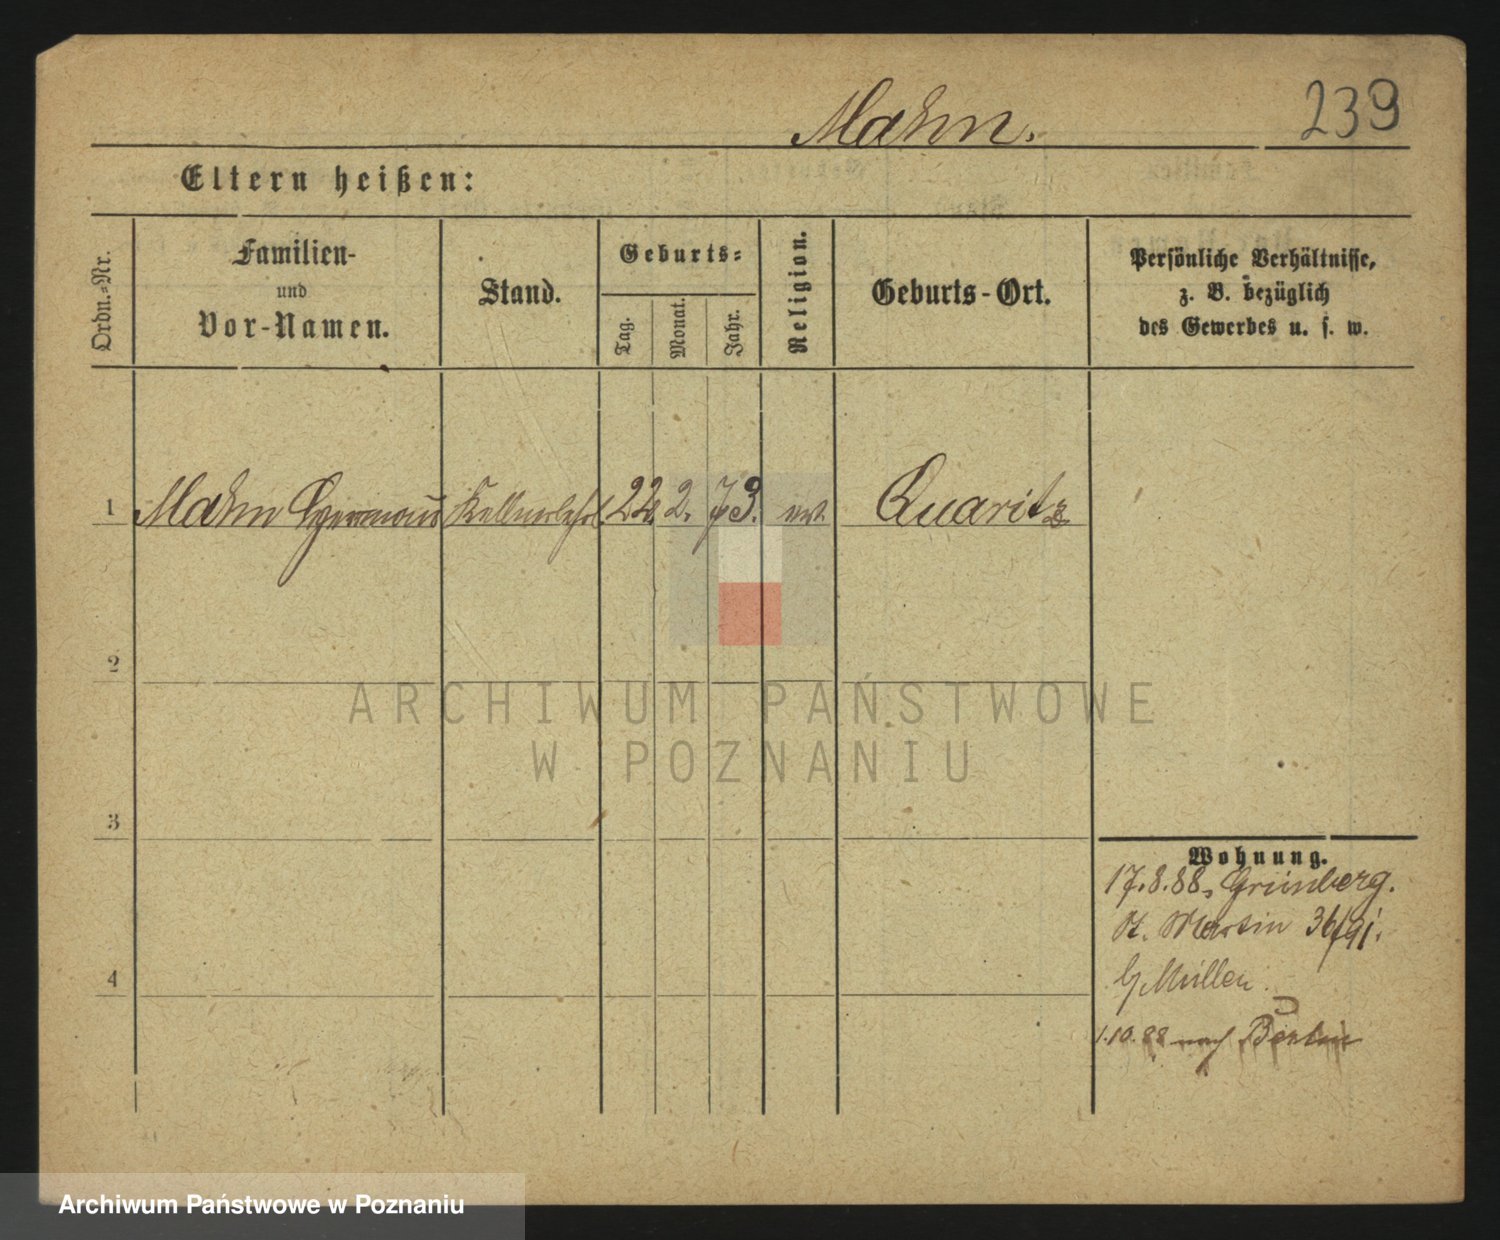 Mahn.
239
Eltern heißen:
Ordn.-Nr.
Familien-
und
Vor-Namen.
Stand.
Geburts-
Tag.
Monat.
Jahr.
Religion.
Geburts-Ort.
Persönliche Verhältnisse,
z. B. bezüglich
des Gewerbes u. s. w.
1 Mahn Hermann Kellnerlehrl. 22. 2. 73. ev. Quaritz
2
3
4
Wohnung.
17.8.88, Grünberg.
St. Martin 36/91.
b/Müller.
1.10.88 nach Berlin
ARCHIWUM PAŃSTWOWE
W POZNANIU
Archiwum Państwowe w Poznaniu